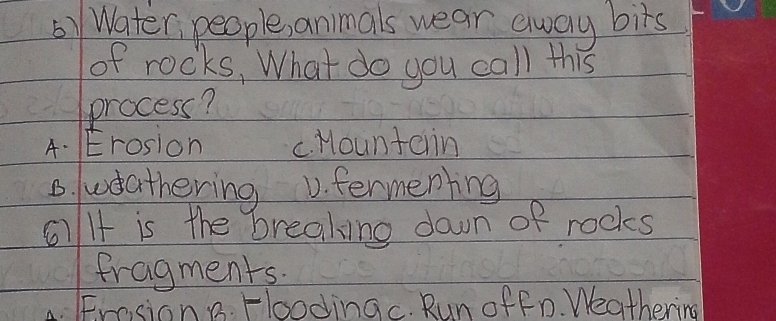 5) Water, people, animals wear away bits
of rocks, What do you call this
process?
A. Erosion C. Mountain
B. weathering D. fermenting
6) It is the breaking down of rocks
fragments.
A. Erosion B. Flooding C. Run off D. Weathering